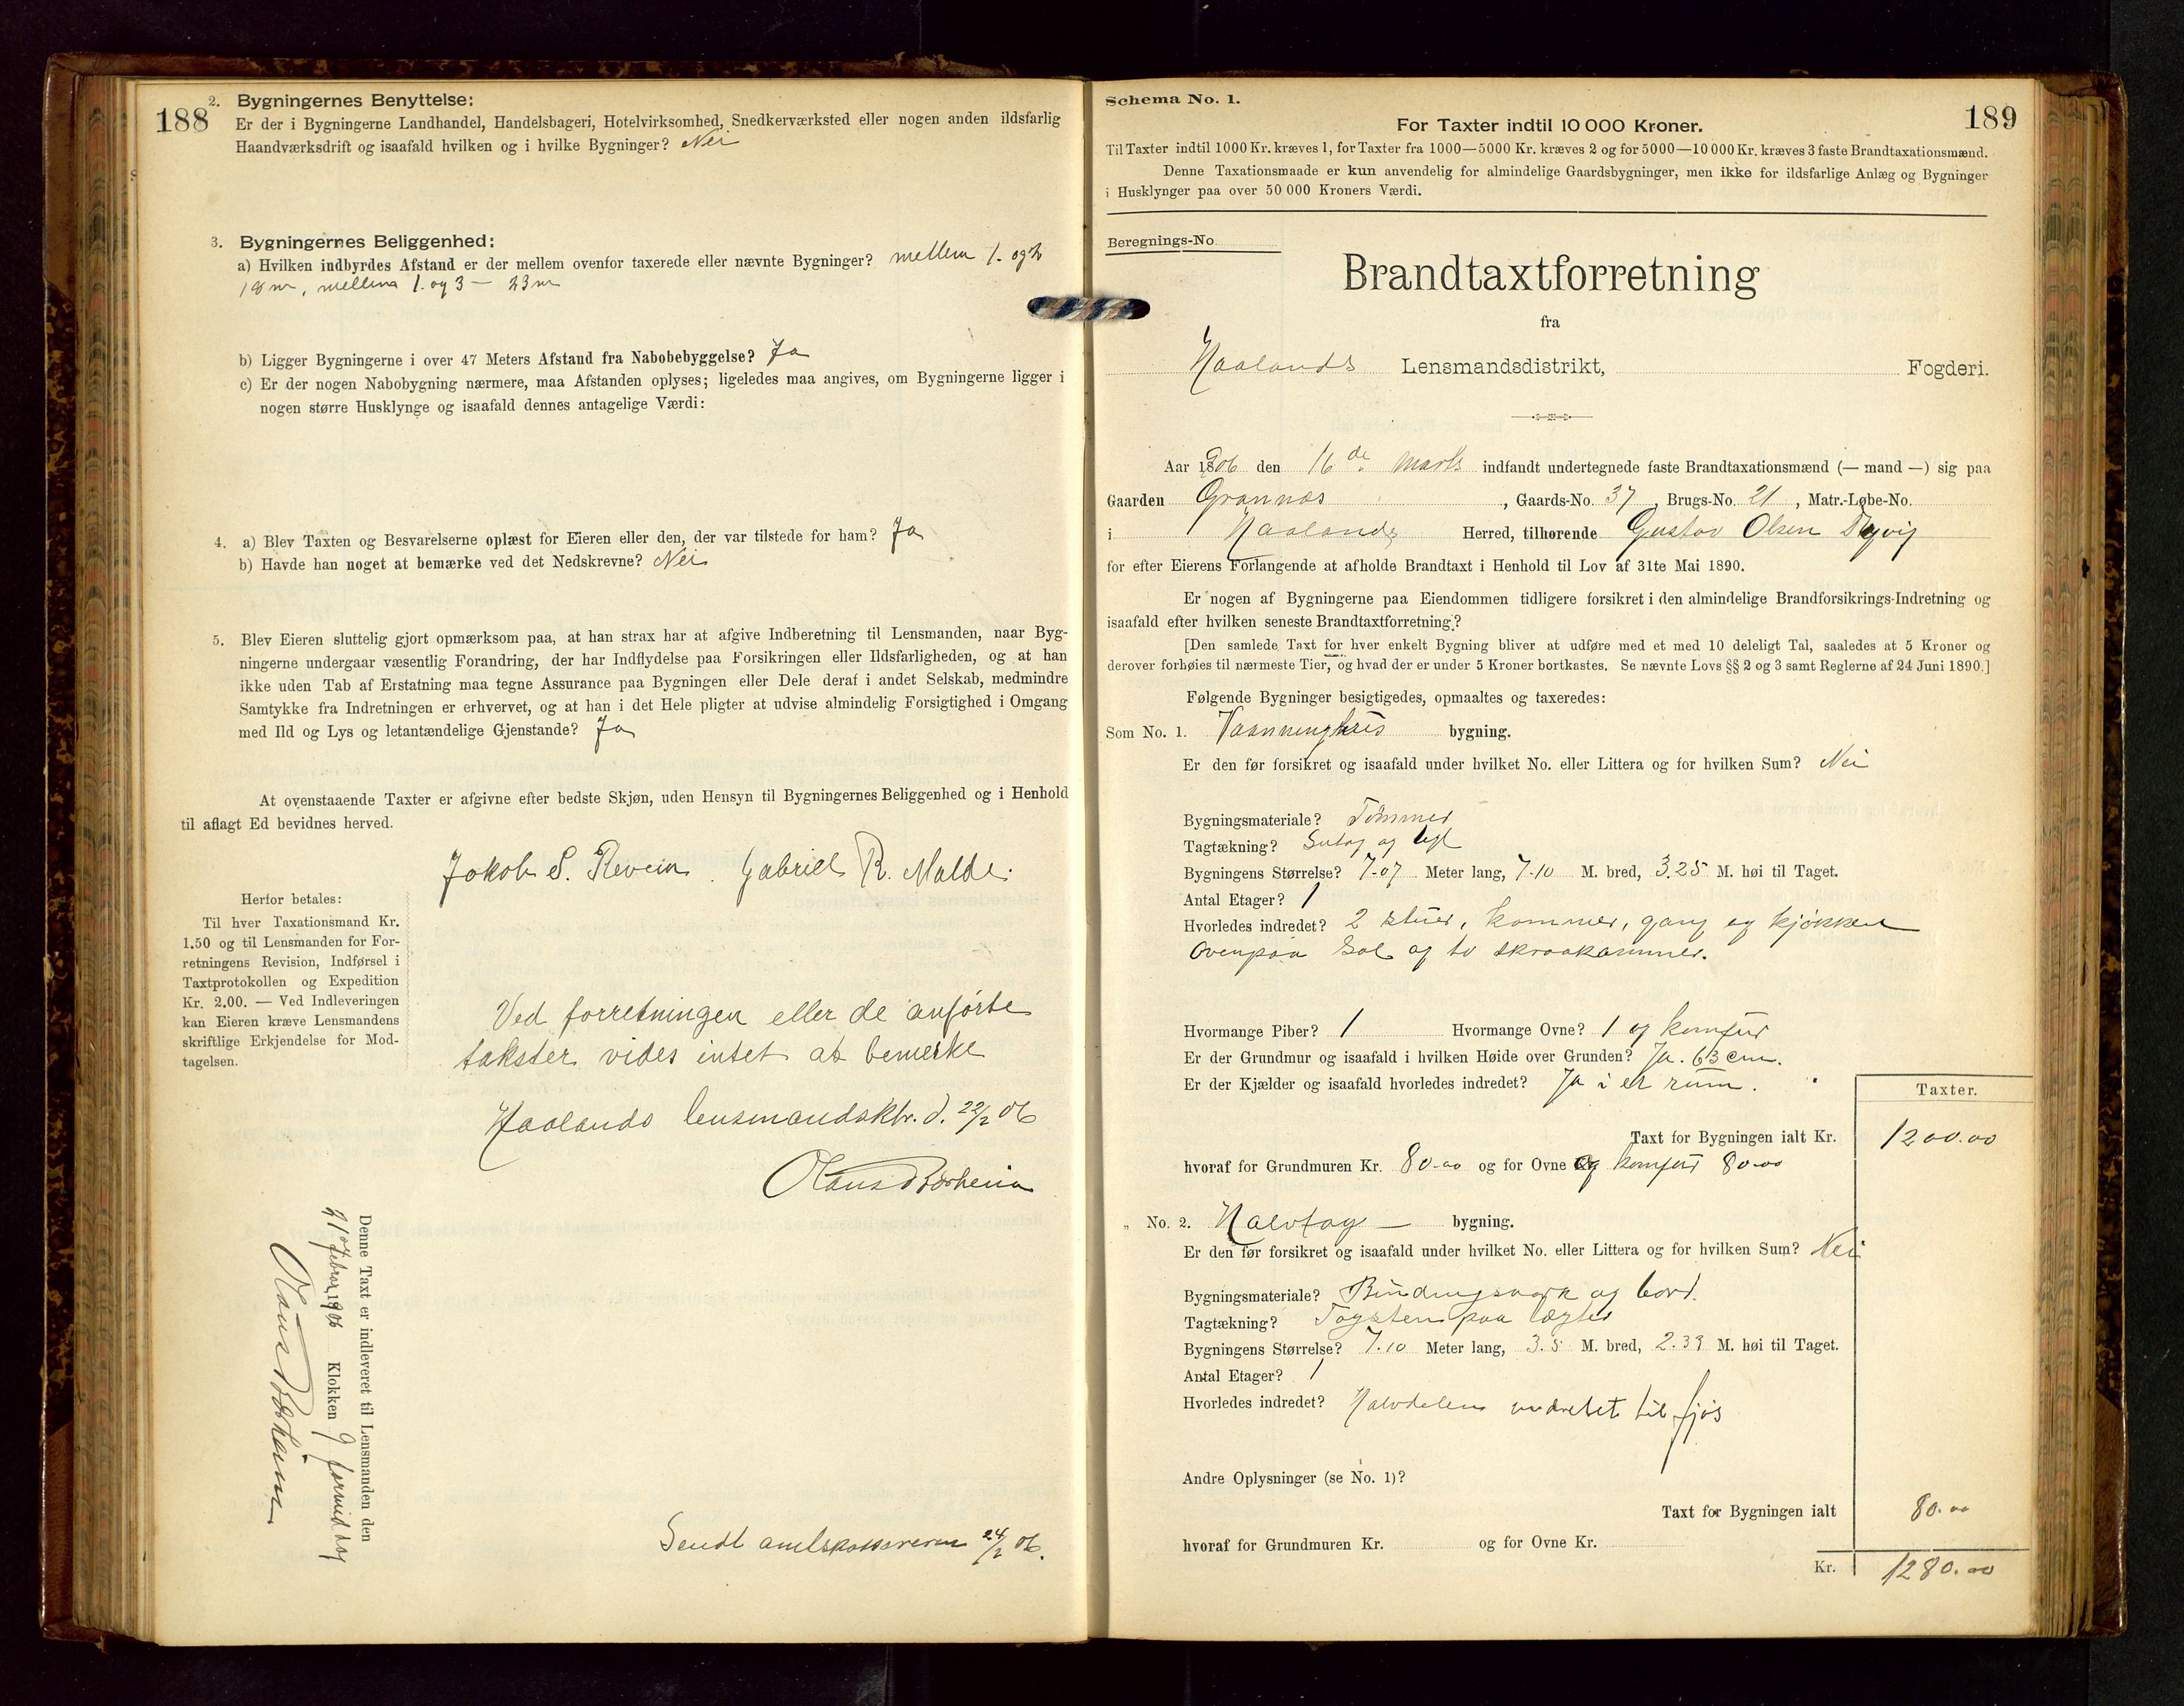 188
2. Bygningernes Benyttelse:
Er der i Bygningerne Landhandel, Handelsbageri, Hotelvirksomhed, Snedkerværksted eller nogen anden ildsfarlig
Haandværksdrift og isaafald hvilken og i hvilke Bygninger? Nei
3. Bygningernes Beliggenhed:
a) Hvilken indbyrdes Afstand er der mellem ovenfor taxerede eller nævnte Bygninger? mellem 1. og 2
18 m, mellem 1. og 3 — 23 m
b) Ligger Bygningerne i over 47 Meters Afstand fra Nabobebyggelse? Ja
c) Er der nogen Nabobygning nærmere, maa Afstanden oplyses; ligeledes maa angives, om Bygningerne ligger i
nogen større Husklynge og isaafald dennes antagelige Værdi:
4. a) Blev Taxten og Besvarelserne oplæst for Eieren eller den, der var tilstede for ham? Ja
b) Havde han noget at bemærke ved det Nedskrevne? Nei
5. Blev Eieren sluttelig gjort opmærksom paa, at han strax har at afgive Indberetning til Lensmanden, naar Byg-
ningerne undergaar væsentlig Forandring, der har Indflydelse paa Forsikringen eller Ildsfarligheden, og at han
ikke uden Tab af Erstatning maa tegne Assurance paa Bygningen eller Dele deraf i andet Selskab, medmindre
Samtykke fra Indretningen er erhvervet, og at han i det Hele pligter at udvise almindelig Forsigtighed i Omgang
med Ild og Lys og letantændelige Gjenstande? Ja
At ovenstaaende Taxter er afgivne efter bedste Skjøn, uden Hensyn til Bygningernes Beliggenhed og i Henhold
til aflagt Ed bevidnes herved.
Jakob S. Revein. Gabriel R. Malde.
Herfor betales:
Til hver Taxationsmand Kr.
1.50 og til Lensmanden for For-
retningens Revision, Indførsel i
Taxtprotokollen og Expedition
Kr. 2.00. — Ved Indleveringen
kan Eieren kræve Lensmandens
skriftlige Erkjendelse for Mod-
tagelsen.
Ved forretningen eller de anførte
takster vides intet at bemerke
Haalands lensmandsktr. d. 22/2 06
Denne Taxt er indleveret til Lensmanden den
21de februar 1906 Klokken 9 formiddag
Sendt amtskassereren 24/2 06.
189
Schema No. 1.
For Taxter indtil 10 000 Kroner.
Til Taxter indtil 1000 Kr. kræves 1, for Taxter fra 1000—5000 Kr. kræves 2 og for 5000—10 000 Kr. kræves 3 faste Brandtaxationsmænd.
Denne Taxationsmaade er kun anvendelig for almindelige Gaardsbygninger, men ikke for ildsfarlige Anlæg og Bygninger
i Husklynger paa over 50 000 Kroners Værdi.
Beregnings-No
Brandtaxtforretning
fra
Haalands Lensmandsdistrikt, Fogderi.
Aar 1906 den 16de marts indfandt undertegnede faste Brandtaxationsmænd (— mand —) sig paa
Gaarden Grannæs, Gaards-No. 37, Brugs-No. 21, Matr.-Løbe-No.
i Haalands Herred, tilhørende Gustav Olsen Dyvig
for efter Eierens Forlangende at afholde Brandtaxt i Henhold til Lov af 31te Mai 1890.
Er nogen af Bygningerne paa Eiendommen tidligere forsikret i den almindelige Brandforsikrings-Indretning og
isaafald efter hvilken seneste Brandtaxtforretning?
[Den samlede Taxt for hver enkelt Bygning bliver at udføre med et med 10 deleligt Tal, saaledes at 5 Kroner og
derover forhøies til nærmeste Tier, og hvad der er under 5 Kroner bortkastes. Se nævnte Lovs §§ 2 og 3 samt Reglerne af 24 Juni 1890.]
Følgende Bygninger besigtigedes, opmaaltes og taxeredes:
Som No. 1. Vaaningshus bygning.
Er den før forsikret og isaafald under hvilket No. eller Littera og for hvilken Sum? Nei
Bygningsmateriale? Tømmer
Tagtækning? Sutag og tegl
Bygningens Størrelse? 7.07 Meter lang, 7.10 M. bred, 3.25 M. høi til Taget.
Antal Etager? 1
Hvorledes indredet? 2 stuer, kammer, gang og kjøkken
Ovenpaa sal og to skraakammer.
Hvormange Piber? 1 Hvormange Ovne? 1 og komfur
Er der Grundmur og isaafald i hvilken Høide over Grunden? Ja. 63 cm.
Er der Kjælder og isaafald hvorledes indredet? Ja i et rum.
Taxter.
Taxt for Bygningen ialt Kr. 1200.00
hvoraf for Grundmuren Kr. 80.00 og for Ovne og komfur 80.00
" No. 2. Halvtag — bygning.
Er den før forsikret og isaafald under hvilket No. eller Littera og for hvilken Sum? Nei
Bygningsmateriale? Bindingsverk og bord.
Tagtækning? Tagsten paa lægter
Bygningens Størrelse? 7.10 Meter lang, 3.5 M. bred, 2.39 M. høi til Taget.
Antal Etager? 1
Hvorledes indredet? Halvdelen indredet til fjøs
Andre Oplysninger (se No. 1)?
Taxt for Bygningen ialt 80.00
hvoraf for Grundmuren Kr. og for Ovne Kr.
Kr. 1280.00